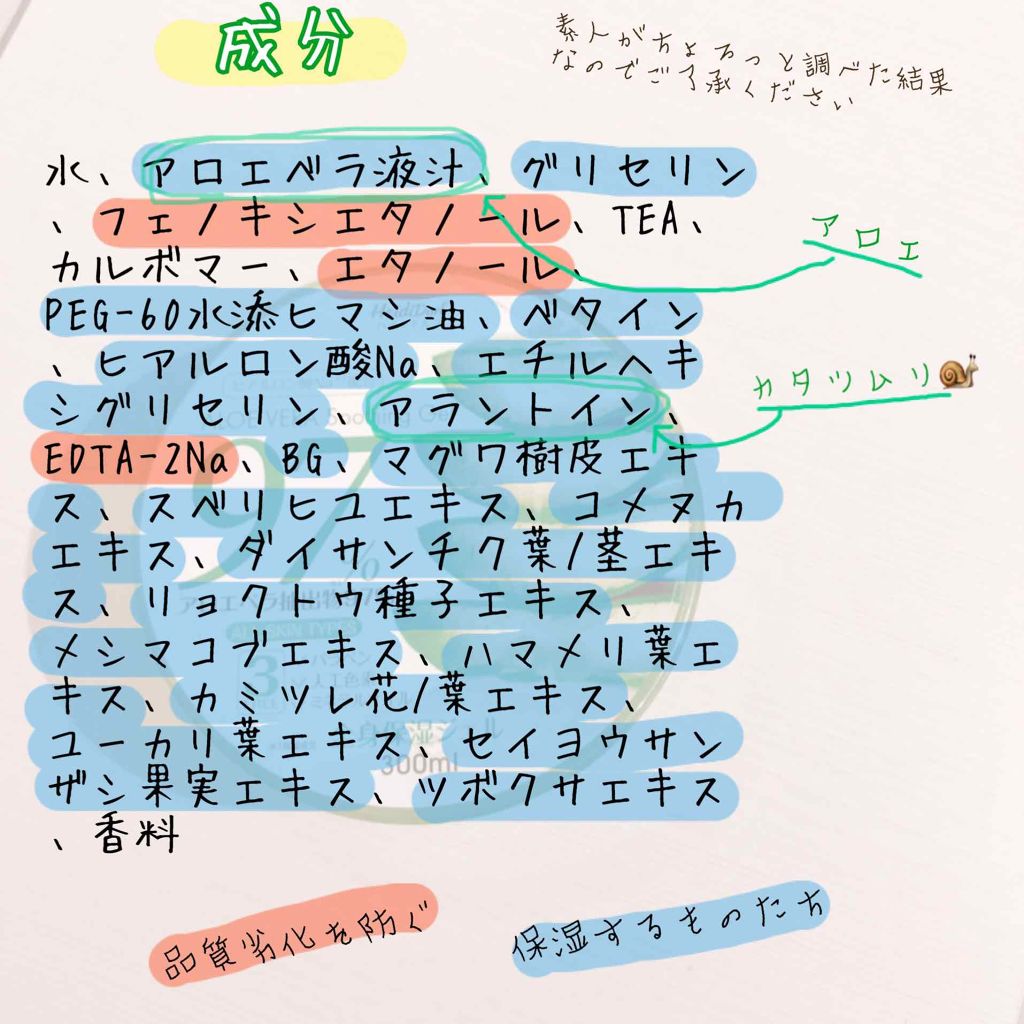 成分
素人がちょろっと調べた結果
なのでご了承ください
水、アロエベラ液汁、グリセリン
、フェノキシエタノール、TEA、
カルボマー、エタノール、
アロエ
PEG-60水添ヒマシ油、ベタイン
、ヒアルロン酸Na、エチルヘキ
シグリセリン、アラントイン、
カタツムリ🐌
EDTA-2Na、BG、マグワ樹皮エキ
ス、スベリヒユエキス、コメヌカ
エキス、ダイサンチク葉/茎エキ
ス、リョクトウ種子エキス、
メシマコブエキス、ハマメリ葉エ
キス、カミツレ花/葉エキス、
ユーカリ葉エキス、セイヨウサン
ザシ果実エキス、ツボクサエキス
、香料
97%
300ml
品質劣化を防ぐ
保湿するものたち